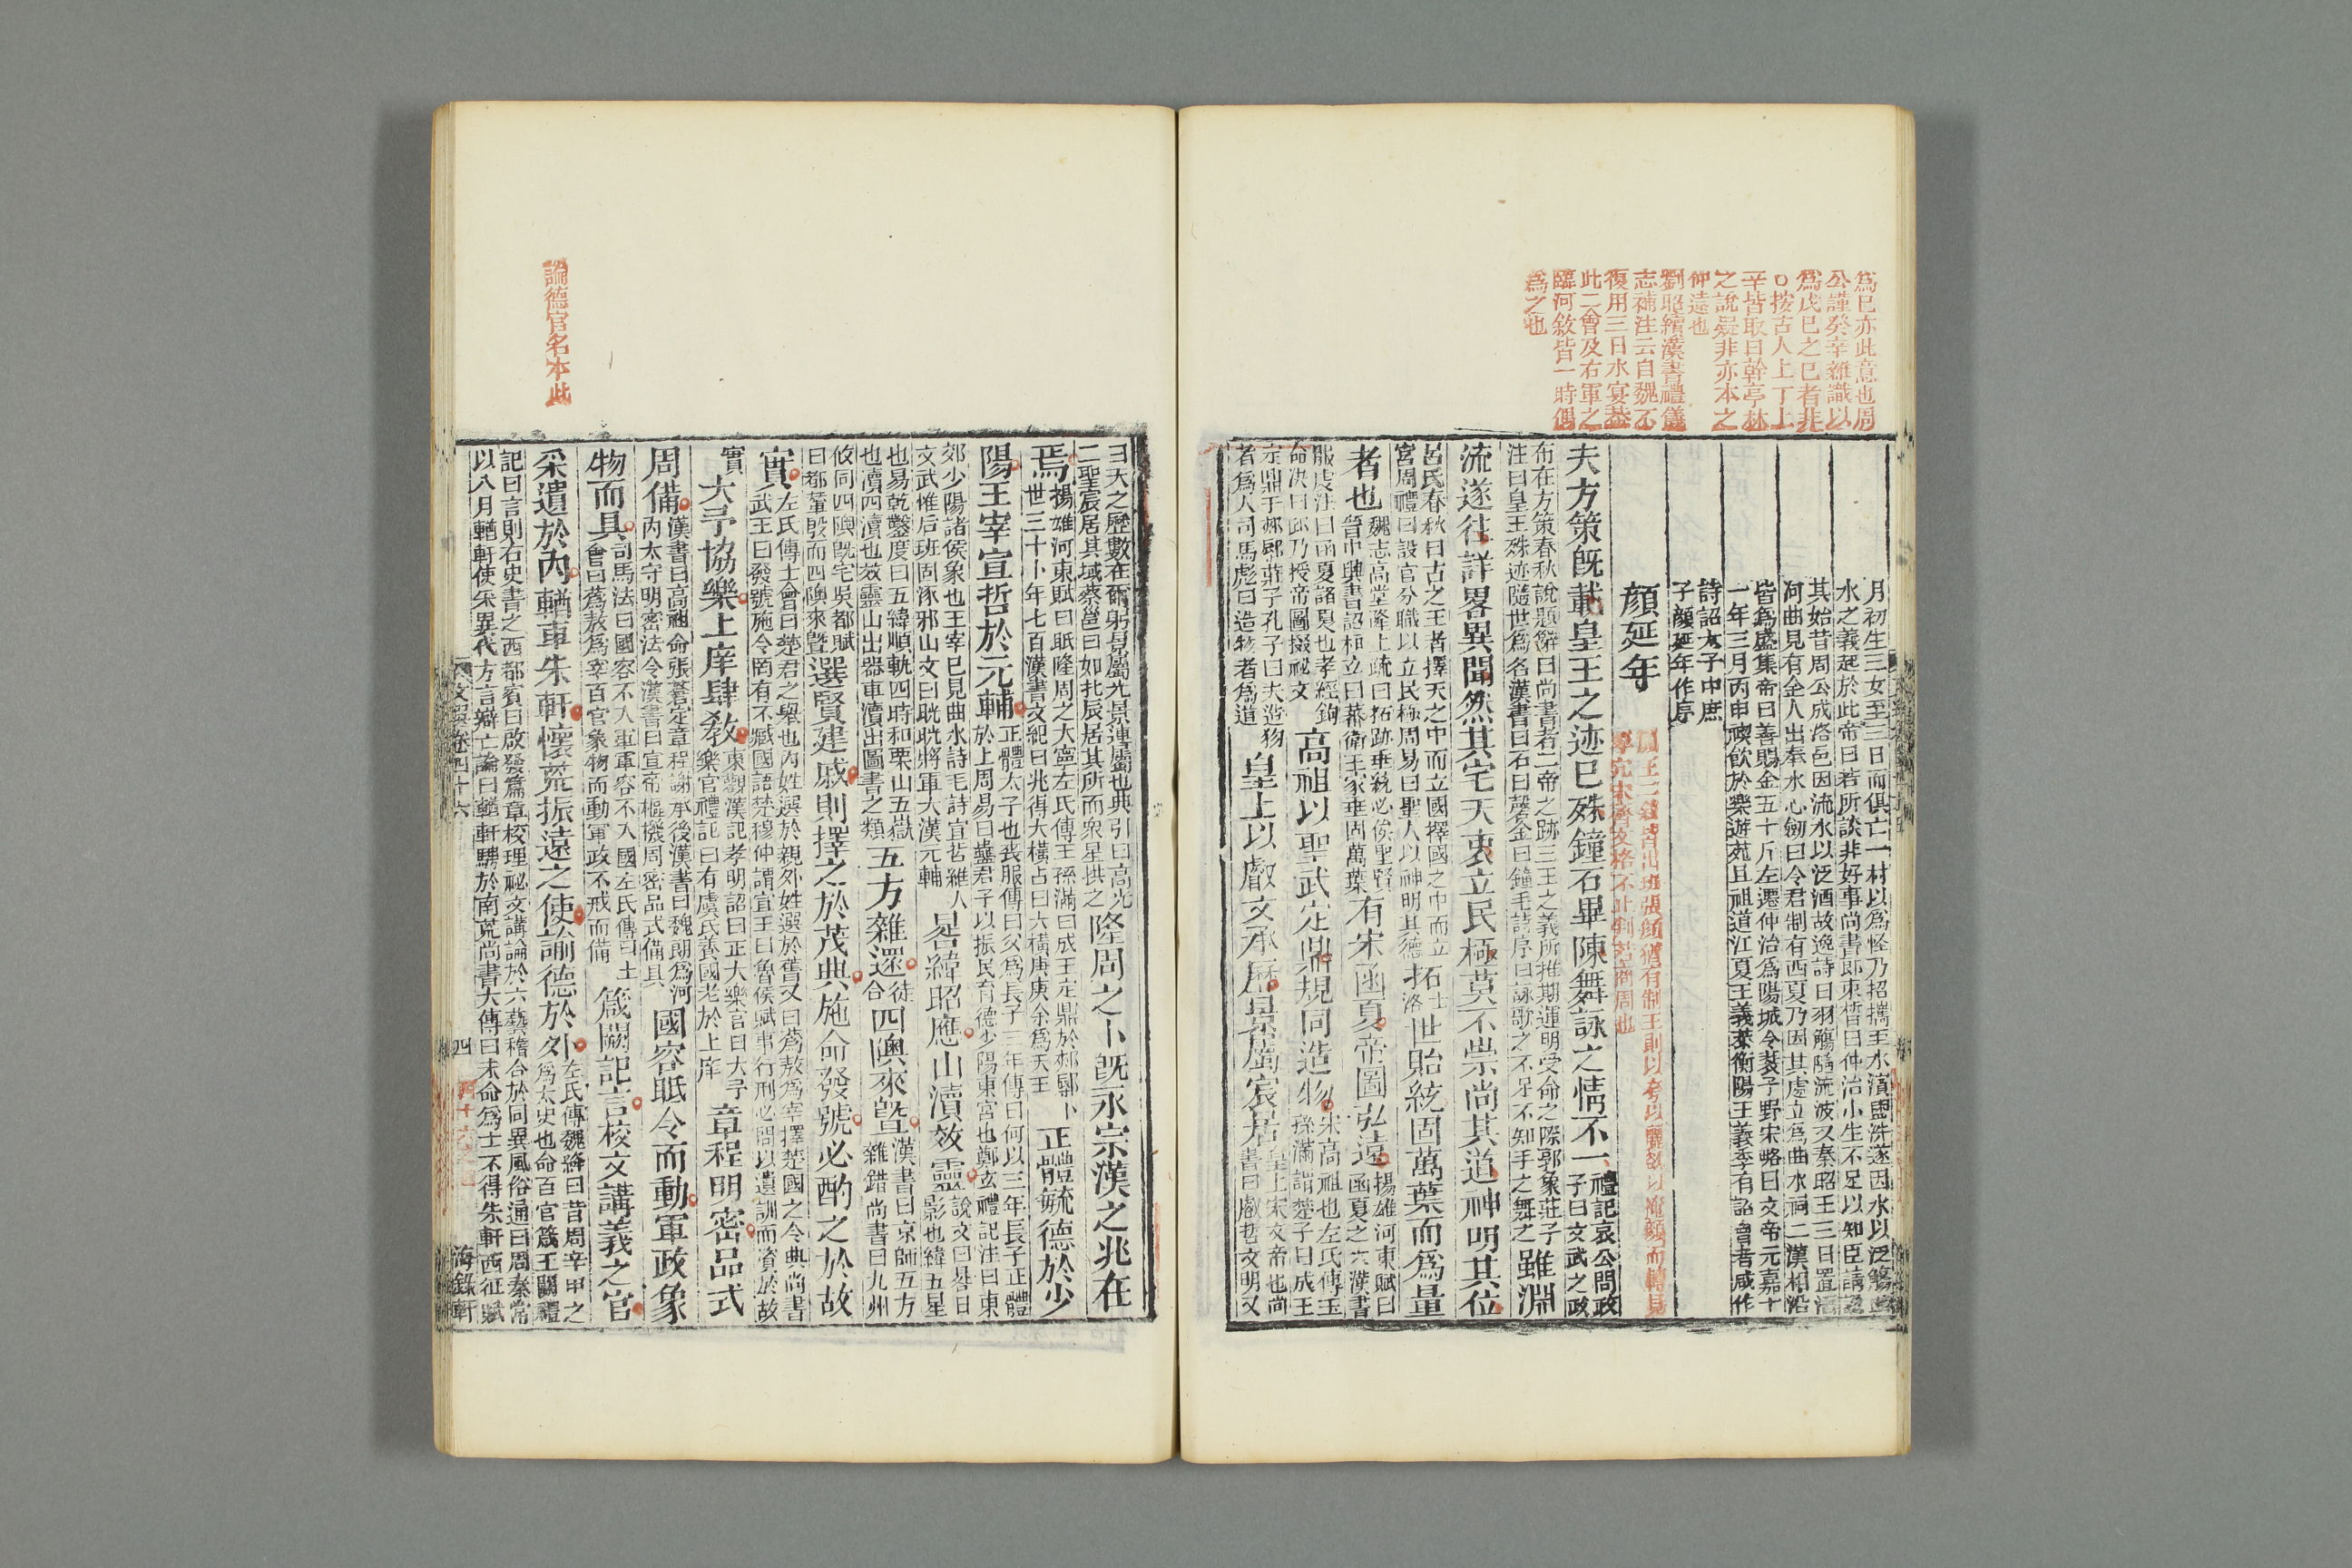 為巳亦此意也周
公謹癸辛雜識以
為戊巳之巳者非
○按古人上丁上
辛皆取日幹亭林
之說疑非亦本之
仲遠也
劉昭續漢書禮儀
志補注云自魏不
復用三日水宴葢
此二會及右軍之
臨河敘皆一時偶
為之也
月初生三女至三日而俱亡一村以爲怪乃招攜至水濱盥洗遂因水以泛觴曲
水之義起於此帝曰若所談非好事尚書郎束晳曰仲治小生不足以知臣請說
其始昔周公成洛邑因流水以泛酒故逸詩曰羽觴隨流波又秦昭王三日置酒
河曲見有金人出奉水心劒曰令君制有西夏乃因其處立爲曲水祠二漢相沿
皆爲盛集帝曰善賜金五十斤左遷仲治爲陽城令裴子野宋略曰文帝元嘉十
一年三月丙申禊飲於樂遊苑且祖道江夏王義恭衡陽王義季有詔會者咸作
詩詔太子中庶
子顏延年作序
顏延年
王二敘皆出班張顏猶有制王則以夸以麗 顏而轉見
卑宂宋齊文格不 商周也
夫方策旣載皇王之迹已殊鐘石畢陳舞詠之情不一
禮記哀公問政
子曰文武之政
布在方策春秋說題辭曰尚書者二帝之跡三王之義所推期運明受命之際郭象莊子
注曰皇王殊迹隨世爲名漢書曰石曰磬金曰鐘毛詩序曰詠歌之不足不知手之舞之
雖淵
流遂往詳畧異聞然其宅天衷立民極莫不崇尚其道神明其位
呂氏春秋曰古之王者擇天之中而立國擇國之中而立
宮周禮曰設官分職以立民極周易曰聖人以神明其德
拓
土
洛
世貽統固萬葉而爲量
者也
魏志高堂隆上疏曰拓跡垂統必俟聖賢
晉中興書詔桓立曰蕃衛王家垂固萬葉
有宋函夏帝圖弘遠
揚雄河東賦曰
函夏之大漢書
服虔注曰函夏諸夏也孝經鉤
命决曰郎乃授帝圖掇祕文
高祖以聖武定鼎規同造物
宋高祖也左氏傳王
孫滿謂楚子曰成王
定鼎于郟鄏莊子孔子曰夫造物
者爲人司馬彪曰造物者爲道
皇上以叡文承曆景屬宸居
皇上宋文帝也尚
書曰叡哲文明又
諭德官名本此
曰天之曆數在爾躬景屬光景連屬也典引曰高光
二聖宸居其域蔡邕曰如北辰居其所而衆星拱之
隆周之卜旣永宗漢之兆在
焉
揚雄河東賦曰眽隆周之大寧左氏傳王孫滿曰成王定鼎於郟鄏卜
世三十卜年七百漢書文紀曰兆得大橫占曰大橫庚庚余爲天王
正體毓德於少
陽王宰宣哲於元輔
正體太子也喪服傳曰父爲長子三年傳曰何以三年長子正體
於上周易曰蠱君子以振民育德少陽東宮也鄭玄禮記注曰東
郊少陽諸侯象也王宰已見曲水詩毛詩宣哲維人
文武惟后班固涿邪山文曰晄晄將軍大漢元輔
晷緯昭應山瀆效靈
說文曰晷日
影也緯五星
也易乾鑿度曰五緯順軌四時和栗山五嶽
也瀆四瀆也效靈山出器車瀆出圖書之類
五方雜遝
徒
合
四隩來曁
漢書曰京師五方
雜錯尚書曰九州
攸同四隩旣宅吳都賦
曰都輦殷而四隩來曁
選賢建戚則擇之於茂典施命發號必酌之於故
實
左氏傳士會曰楚君之舉也內姓選於親外姓選於舊又曰蔿敖爲宰擇楚國之令典尚書
武王曰發號施令罔有不臧國語楚穆仲謂宣王曰魯侯賦事行刑必問以遺訓而資於故
實
大予協樂上庠肆敎
東觀漢記孝明詔曰正大樂官曰大予
樂官禮記曰有虞氏養國老於上庠
章程明密品式
周備
漢書曰高祖命張蒼定章程謝承後漢書曰魏朗爲河
內太守明密法令漢書曰宣帝樞機周密品式備具
國容眂令而動軍政象
物而具
司馬法曰國容不入軍軍容不入國左氏傳曰士
會曰蔿敖爲宰百官象物而動軍政不戒而備
箴闕記言校文講義之官
采遺於內輶車朱軒懷荒振遠之使諭德於外
左氏傳魏絳曰昔周辛甲之
爲太史也命百官箴王闕禮
記曰言則右史書之西都賓曰啟發篇章校理祕文講論於六藝稽合於同異風俗通曰周秦常
以八月輶軒使采異代方言辯亡論曰輶軒騁於南荒尚書大傳曰未命爲士不得朱軒西征賦
文選卷四十六
四
海錄軒